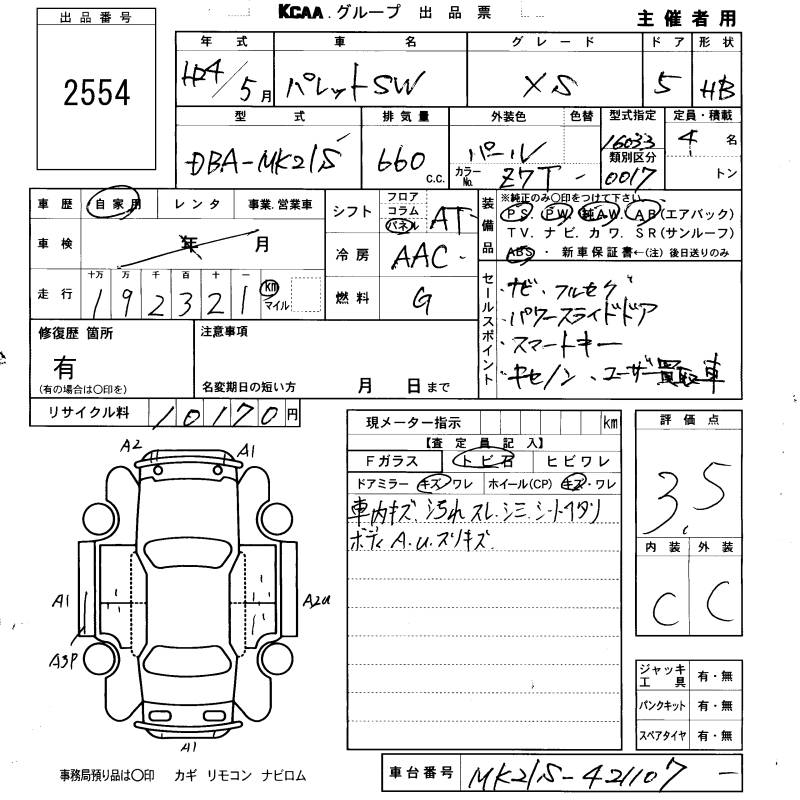 KCAA.グループ 出品票
主催者用
出品番号
2554
年式 車名 グレード ドア 形状
H24/5月 パレットSW XS 5 HB
型式 排気量 外装色 色替 型式指定 定員・積載
DBA-MK21S 660 c.c. パール カラーNo. Z7T - 16033 4名
類別区分
0017 トン
車歴 自家用 レンタ 事業.営業車
シフト フロア コラム パネル AT
装備品 ※純正のみ○印をつけて下さい
PS. PW. 純AW. AB(エアバック)
TV. ナビ. カワ. SR(サンルーフ)
ABS・ 新車保証書←(注) 後日送りのみ
車検 年 月
冷房 AAC
走行 十万 万 千 百 十 一
192321 km マイル
燃料 G
セールスポイント
・ナビ・フルセグ
・パワースライドドア
・スマートキー
・キセノン、ユーザー買取車
修復歴 箇所
有
(有の場合は○印を)
注意事項
名変期日の短い方 月 日まで
リサイクル料 10170円
現メーター指示 km
【査定員記入】
Fガラス トビ石 ヒビワレ
ドアミラー キズ ワレ ホイール(CP) キズ・ワレ
車内キズ.汚れ スレ.シミ.シートイタリ
ボディ A.u.スリキズ.
評価点
3.5
内装 外装
C C
A2 A1
A1 A2u
A3P
A1
ジャッキ工具 有・無
パンクキット 有・無
スペアタイヤ 有・無
事務局預り品は○印 カギ リモコン ナビロム
車台番号 MK21S-421107 -